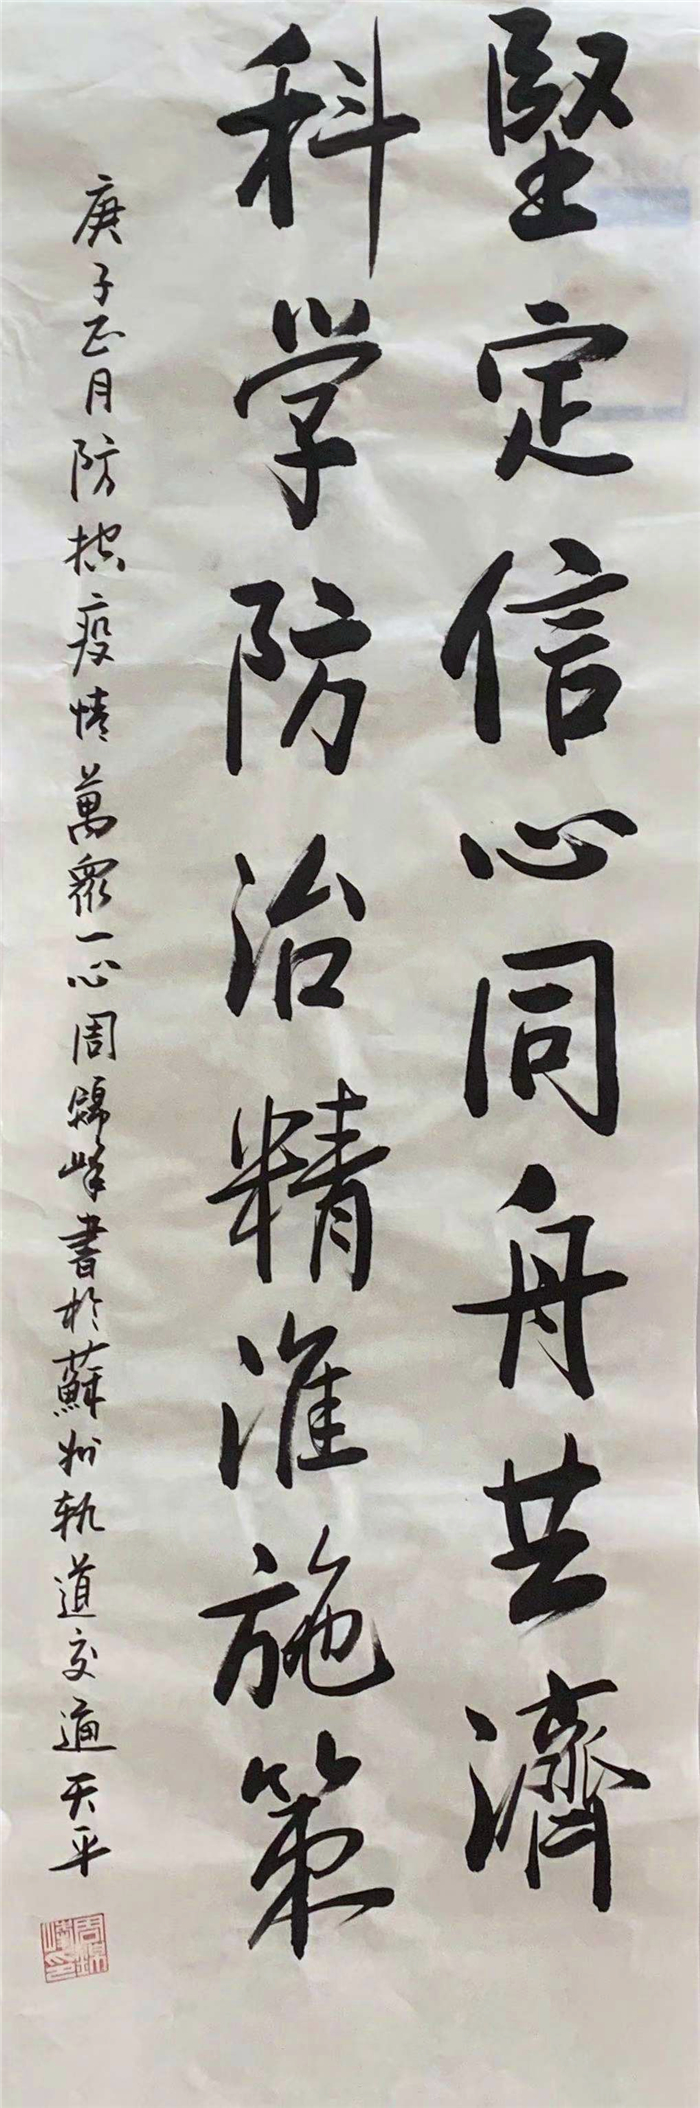 堅定信心同舟共濟
科学防治精准施策
庚子正月防控疫情萬衆一心周錦峰書於蘇州軌道交通天平